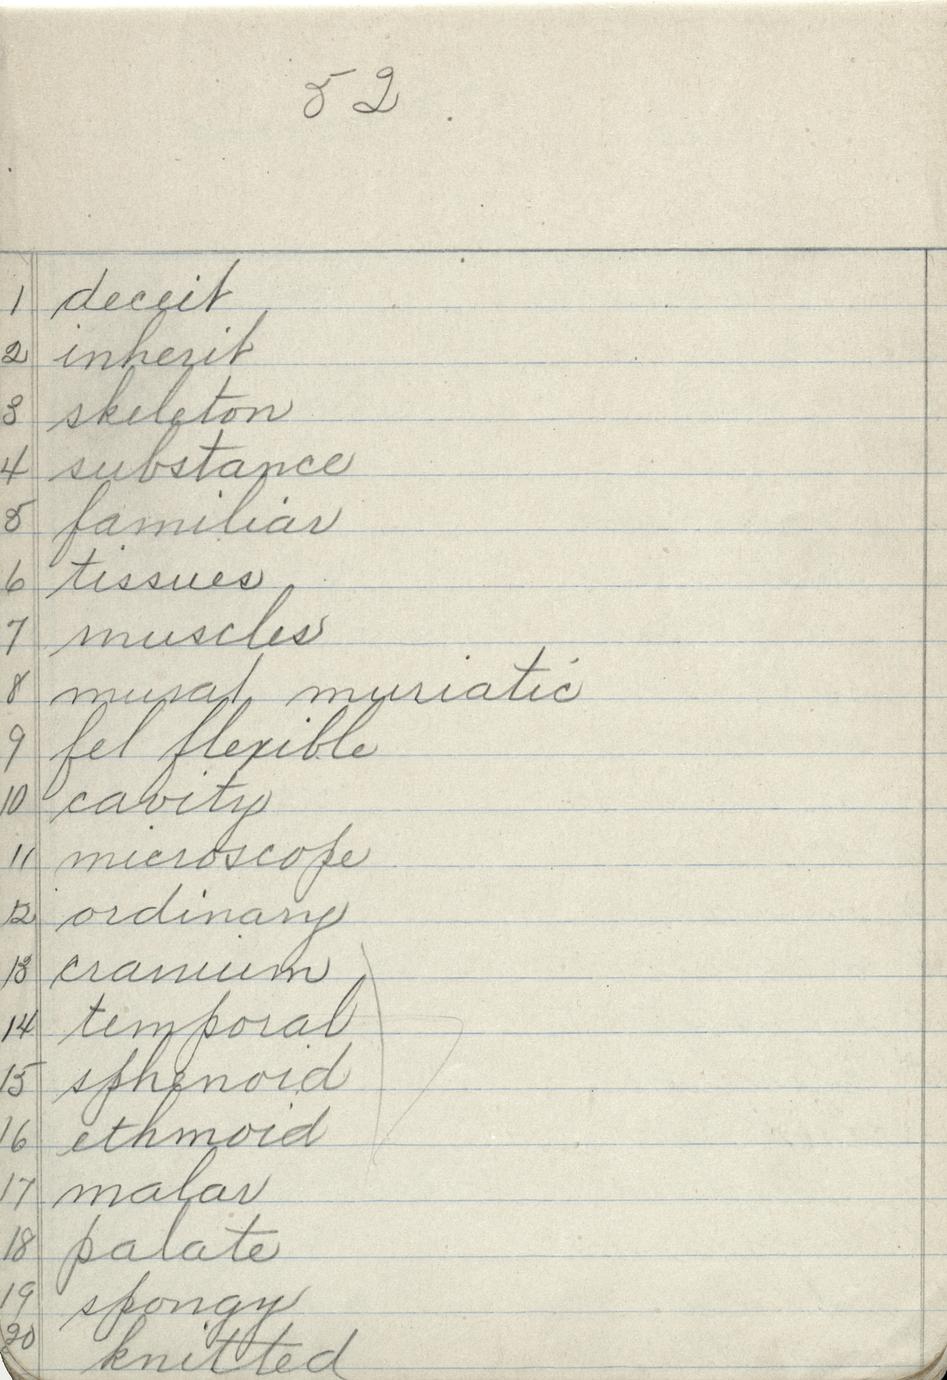 52
1 deceit
2 inherit
3 skeleton
4 substance
5 familiar
6 tissues
7 muscles
8 murat muriatic
9 fel flexible
10 cavity
11 microscope
12 ordinary
13 cranium
14 temporal
15 sphenoid
16 ethmoid
17 malar
18 palate
19 spongy
20 knitted